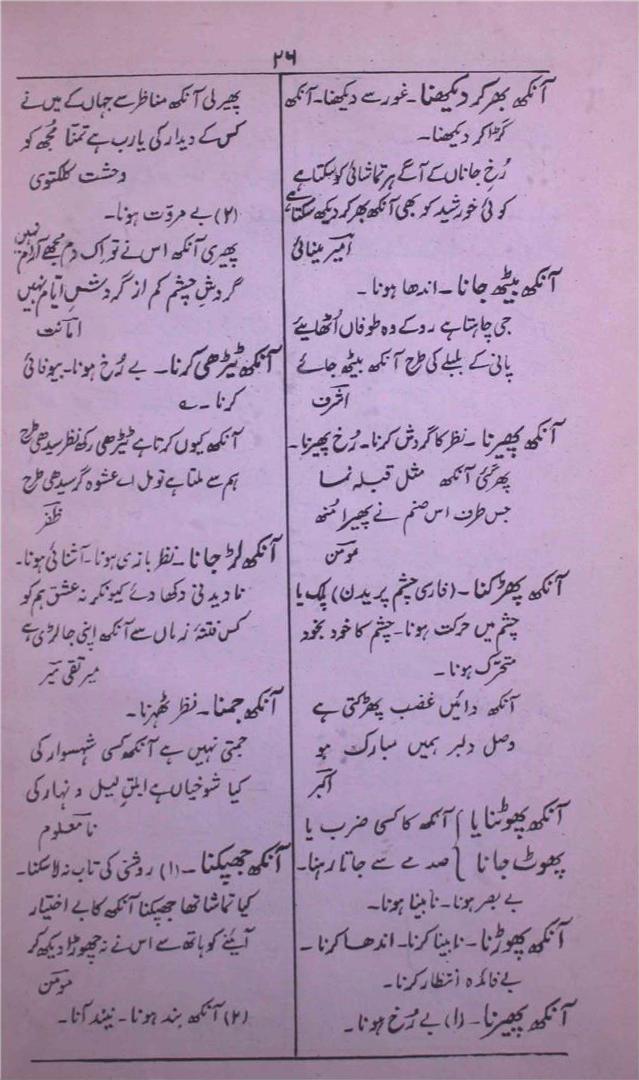 ۲۶
آنکھ بھر کر دیکھنا۔ غور سے دیکھنا۔ آنکھ
کڑا کر دیکھنا۔
رُخِ جاناں کے آگے ہر تماشائی کو سکتا ہے
کوئی خورشید کو بھی آنکھ بھر کر دیکھ سکتا ہے
امیر مینائی
آنکھ بیٹھ جانا۔ اندھا ہونا۔
جی چاہتا ہے رو کے وہ طوفاں اُٹھایئے
پانی کے بلبلے کی طرح آنکھ بیٹھ جائے
اشرف
آنکھ پھیرنا۔ نظر کا گردش کرنا۔ رُخ پھیرنا۔
پھر گئی آنکھ مثل قبلہ نما
جس طرف اس صنم نے پھیرا مُنھ
مومن
آنکھ پھڑکنا۔ (فارسی چشم پریدن) پلک یا
چشم میں حرکت ہونا۔ چشم کا خود بخود
متحرک ہونا۔
آنکھ دائیں غضب پھڑکتی ہے
وصل دلبر ہمیں مبارک ہو
اکبر
آنکھ پھوٹنا یا } آنکھ کا کسی ضرب یا
پھوٹ جانا } صدمے سے جاتا رہنا۔
بے بصر ہونا۔ نابینا ہونا۔
آنکھ پھوڑنا۔ نابینا کرنا۔ اندھا کرنا۔
بے فائدہ انتظار کرنا۔
آنکھ پھیرنا۔ (۱) بے رُخ ہونا۔
پھیر لی آنکھ مناظر سے جہاں کے میں نے
کس کے دیدار کی یارب ہے تمنّا مُجھ کو
وحشت کلکتوی
(۲) بے مروّت ہونا۔
پھیری آنکھ اس نے تو اِک دم مجھے آرام نہیں
گردشِ چشم کم از گردشِ ایّام نہیں
امانت
آنکھ ٹیڑھی کرنا۔ بے رُخ ہونا۔ بیوفائی
کرنا۔
آنکھ کیوں کرتا ہے ٹیڑھی رکھ نظر سیدھی طرح
ہم سے ملتا ہے تو مل اے عشوہ گر سیدھی طرح
ظفر
آنکھ لڑ جانا۔ نظر بازی ہونا۔ آشنائی ہونا۔
نادیدنی دکھا دے کیونکر نہ عشق ہم کو
کس فتنۂ زماں سے آنکھ اپنی جا لڑی ہے
میر تقی میر
آنکھ جمنا۔ نظر ٹھہرنا۔
جمتی نہیں ہے آنکھ کسی شہسوار کی
کیا شوخیاں ہے ابلقِ لیل و نہار کی
نامعلوم
آنکھ جھپکنا۔ (۱) روشنی کی تاب نہ لا سکنا۔
کیا تماشا تھا جھپکنا آنکھ کا بے اختیار
آئینے کو ہاتھ سے اس نے نہ چھوڑا دیکھ کر
مومن
(۲) آنکھ بند ہونا۔ نیند آنا۔